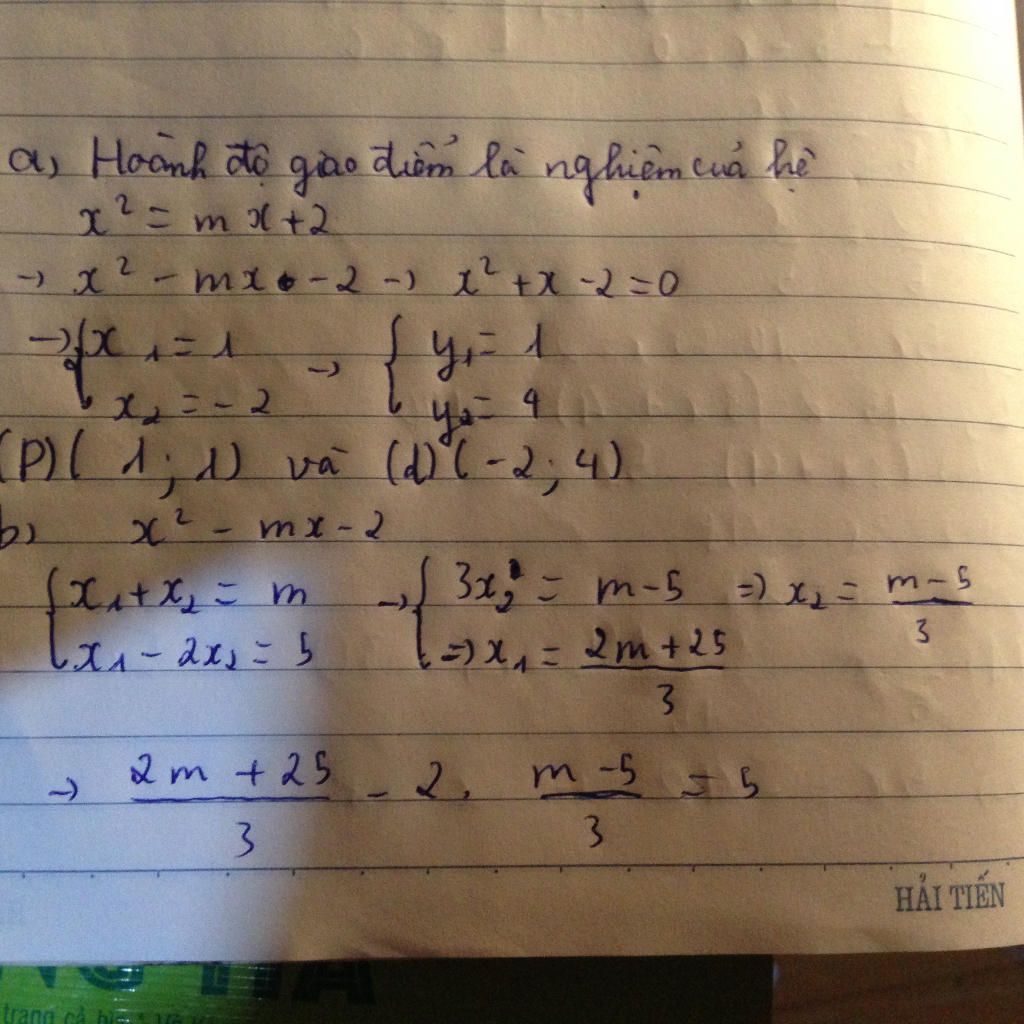 a, Hoành độ giao điểm là nghiệm của hệ
x² = mx + 2
→ x² - mx - 2 → x² + x - 2 = 0
→ { x₁ = 1 → { y₁ = 1
x₂ = -2 y₂ = 4
(P)( 1 ; 1) và (d)( -2 ; 4)
b, x² - mx - 2
{ x₁ + x₂ = m → { 3x₂ = m - 5 => x₂ = (m - 5)/3
x₁ - 2x₂ = 5 => x₁ = (2m + 25)/3
→ (2m + 25)/3 - 2. (m - 5)/3 = 5
HẢI TIẾN